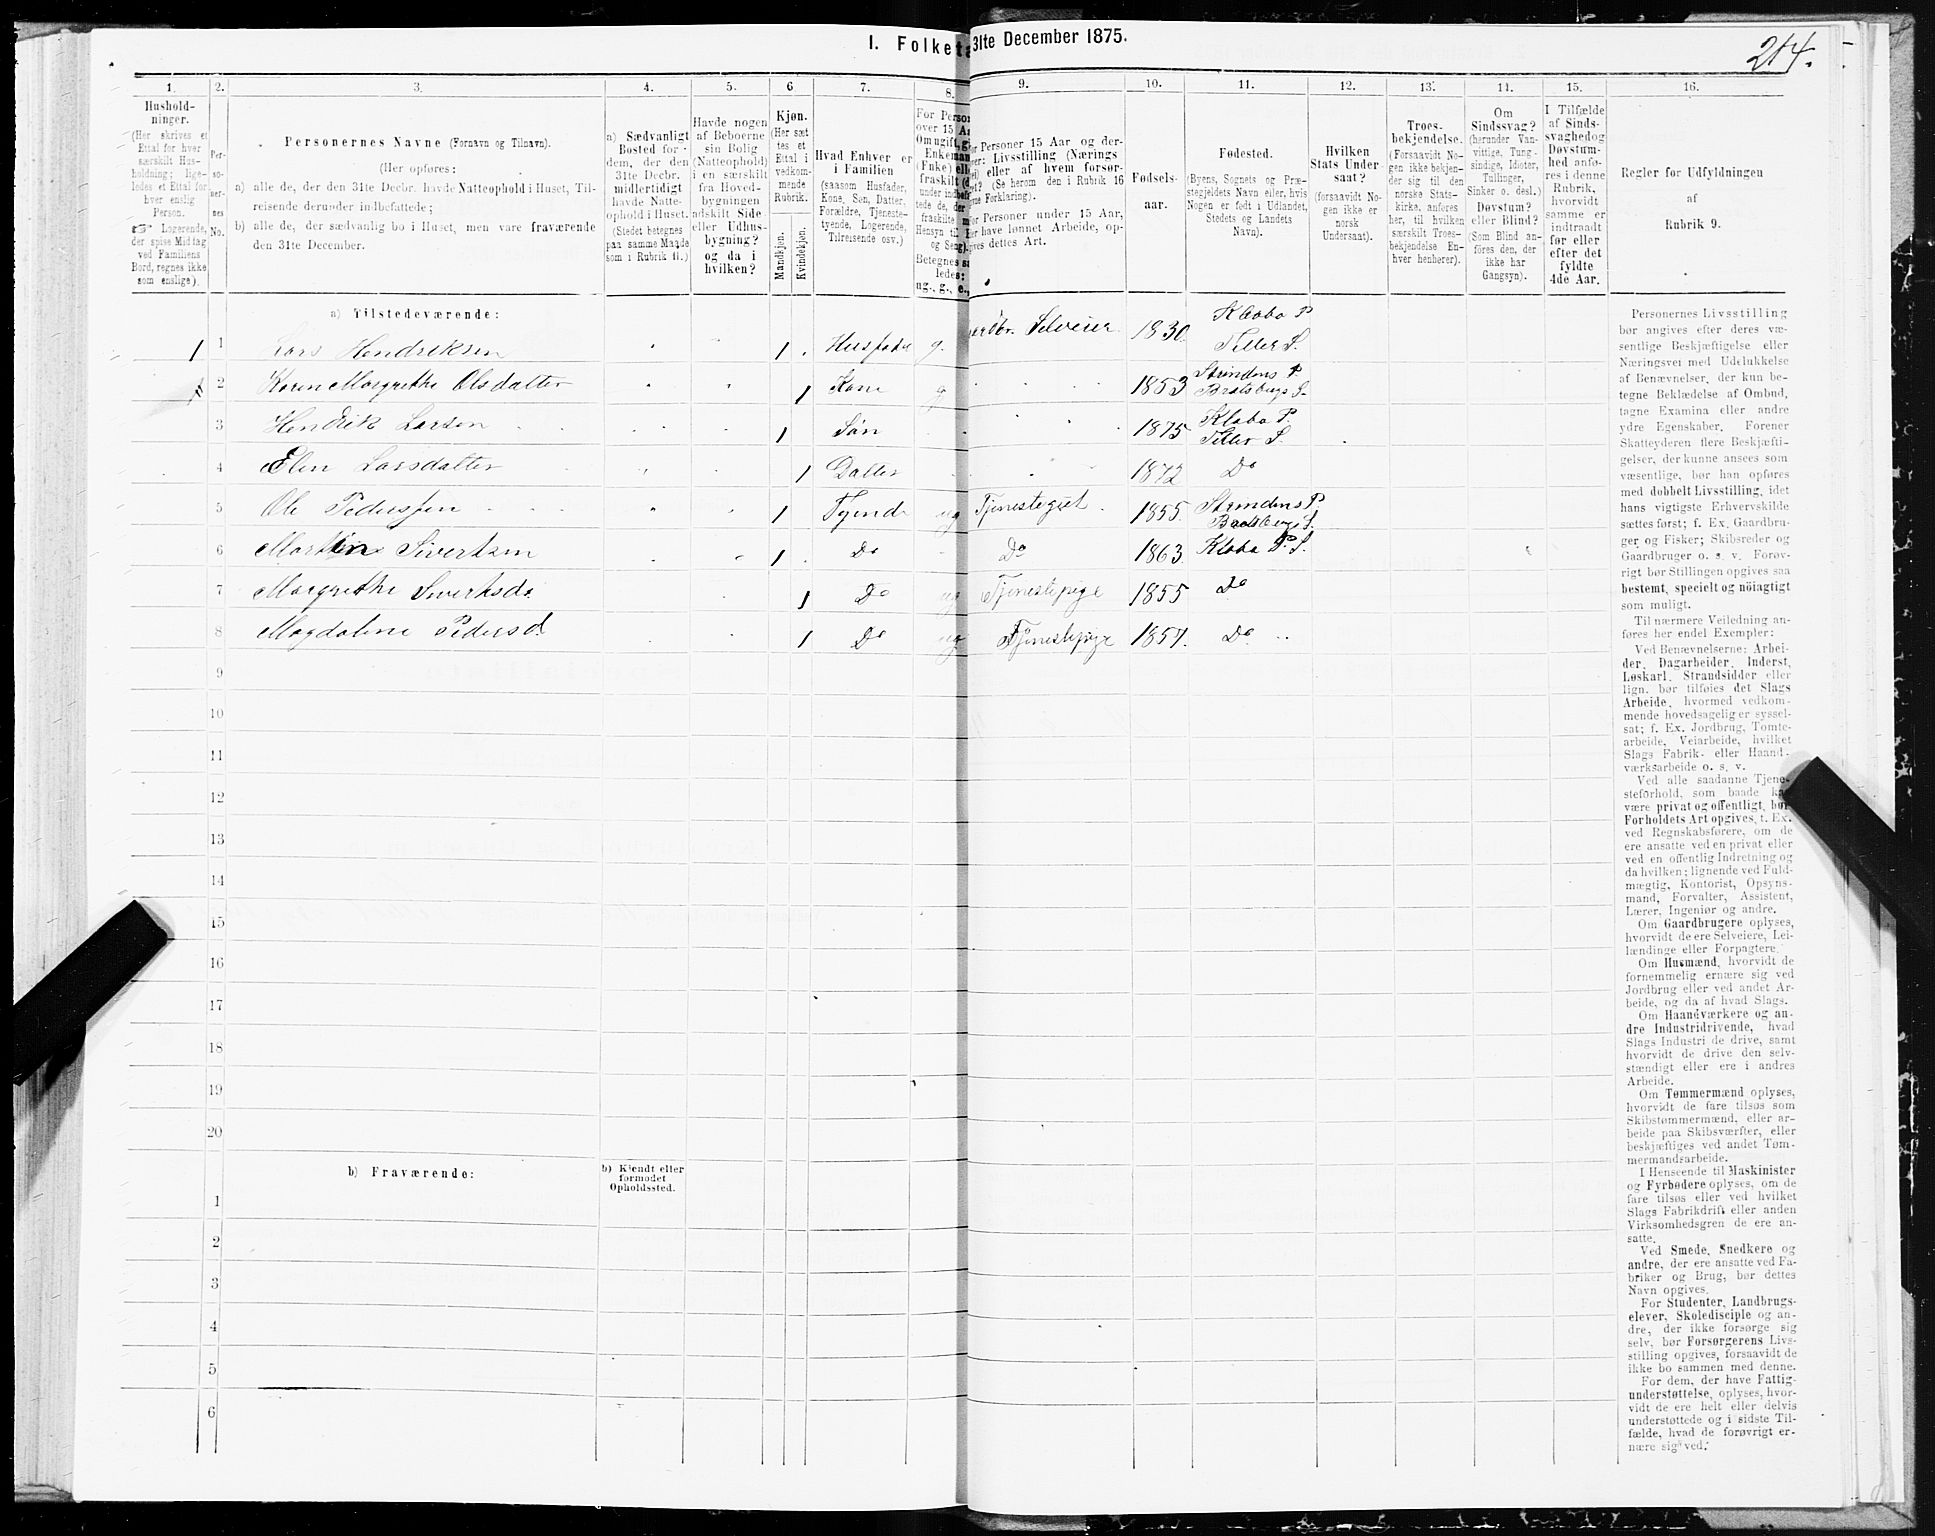 I. Folketæ 31te December 1875.
214.
1. 2. 3. 4. 5. 6 7. 8. 9. 10. 11. 12. 13. 14. 15. 16.
Hushold-
ninger.
(Her skrives et
Ettal for hver
særskilt Hus-
holdning; lige-
ledes et Ettal for
hver enslig
Person.
☞ Logerende,
der spise Middag
ved Familiens
Bord, regnes ikke
som enslige).
Per-
so-
ner-
nes
No.
Personernes Navne (Fornavn og Tilnavn).
(Her opføres:
a) alle de, der den 31te Decbr. havde Natteophold i Huset, Til-
reisende derunder indbefattede;
b) alle de, der sædvanlig bo i Huset, men vare fraværende
den 31te December.
a) Sædvanligt
Bosted for
dem, der den
31te Decbr.
midlertidigt
havde Natte-
ophold i Huset.
(Stedet betegnes
paa samme Maade
som i Rubrik 11.)
Havde nogen
af Beboerne
sin Bolig
(Natteophold)
i en særskilt
fra Hoved-
bygningen
adskilt Side-
eller Udhus-
bygning?
og da i
hvilken?
Kjøn.
(Her sæt-
tes et
Ettal i
vedkom-
mende
Rubrik.
Mandkjøn.
Kvindekjøn.
Hvad Enhver er
i Familien
(saasom Husfader,
Kone, Søn, Datter,
Forældre, Tjeneste-
tyende, Logerende,
Tilreisende osv.)
For Perso
over 15 Aa
Om ugift, g
Enkeman
(Fnke) elle
fraskilt (
under indbef
tede de, der
fraskilte m
Hensyn til B
og Seng).
Betegnes sa
ledes:
ug., g., e.,
or Personer 15 Aar og der-
ver: Livsstilling (Nærings
ei) eller af hvem forsør-
get? (Se herom den i Rubrik 16
ne Forklaring).
or Personer under 15 Aar,
er have lønnet Arbeide, op-
gives dettes Art.
Fødsels-
aar.
Fødested.
(Byens, Sognets og Præ-
stegjeldets Navn eller, hvis
Nogen er født i Udlandet,
Stedets og Landets
Navn).
Hvilken
Stats Under-
saat?
(forsaavidt No-
gen ikke er
norsk
Undersaat).
Troes-
bekjendelse.
(Forsaavidt No-
gen ikke bekjen-
der sig til den
norske Stats-
kirke, anføres
her, til hvilken
særskilt Troes-
bekjendelse En-
hver henhører).
Om
Sindssvag?
(herunder Van-
vittige, Tung-
sindige, Idioter,
Tullinger,
Sinker o. desl.)
Døvstum?
eller Blind?
(Som Blind an-
føres den, der
ikke har
Gangsyn).
I Tilfælde
af Sinds-
svaghedog
Døvstum-
hed anfø-
res i denne
Rubrik,
hvorvidt
samme er
indtraadt
før eller
efter det
fyldte
4de Aar.
Regler for Udfyldningen
af
Rubrik 9.
a) Tilstedeværende:
1 1 Lars Hendriksen 1 Husfader g. Selveier 1830. Klæbo P Tiller S.
1 2 Karen Margrethe Olsdatter 1 Kone g 1853 Strindens P Bratsbergs S.
3 Hendrik Larsen 1 Søn 1875 Klæbo P. Tiller S.
4 Elen Larsdatter 1 Datter 1872 Do
5 Ole Pedersen 1 Tyende ug Tjenestegut 1855. Strindens P. Bratsbergs S.
6 Martin Sivertsen 1 Do Do 1863. Klæbo P. S.
7 Margrethe Sivertsd. 1 Do ug Tjenestepige 1855 Do
8 Magdalene Pedersd. 1 Do ug Tjenestepige 1857. Do
9
10
11
12
13
14
15
16
17
18
19
20
b) Fraværende:
b) Kjendt eller
formodet
Opholdssted.
1
2
3
4
5
6
Personernes Livsstilling
bør angives efter deres væ-
sentlige Beskjæftigelse eller
Næringsvei med Udelukkelse
af Benævnelser, der kun be-
tegne Beklædelse af Ombud,
tagne Examina eller andre
ydre Egenskaber. Forener
Skatteyderen flere Beskjæfti-
gelser, der kunne ansees som
væsentlige, bør han opføres
med dobbelt Livsstilling, idet
hans vigtigste Erhvervskilde
sættes først; f. Ex. Gaardbru-
ger og Fisker; Skibsreder og
Gaardbruger o. s. v. Forøv-
rigt bør Stillingen opgives saa
bestemt, specielt og nöiagtigt
som muligt.
Til nærmere Veiledning an-
føres her endel Exempler:
Ved Benævnelserne: Arbei-
der, Dagarbeider, Inderst,
Løskarl, Strandsidder eller
lign. bør tilføies det Slags
Arbeide, hvormed vedkom-
mende hovedsagelig er syssel-
sat; f. Ex. Jordbrug, Tomte-
arbeide, Veiarbeide, hvilket
Slags Fabrik- eller Haand-
værksarbeide o. s. v.
Ved alle saadanne Tjene-
steforhold, som baade kan
være privat og offentligt, bør
Forholdets Art opgives, f. Ex.
ved Regnskabsførere, om de
ere ansatte ved en privat eller
ved en offentlig Indretning og
da hvilken; lignende ved Fuld-
mægtig, Kontorist, Opsyns-
mand, Forvalter, Assistent,
Lærer, Ingeniør og andre.
Om Gaardbrugere oplyses,
hvorvidt de ere Selveiere, Lei-
lændinge eller Forpagtere.
Om Husmænd, hvorvidt de
fornemmelig ernære sig ved
Jordbrug eller ved andet Ar-
beide, og da af hvad Slags.
Om Haandværkere og an-
dre Industridrivende, hvad
Slags Industri de drive, samt
hvorvidt de drive den selv-
stændigt eller ere i andres
Arbeide.
Om Tømmermænd oplyses,
hvorvidt de fare tilsøs som
Skibstømmermænd, eller ar-
beide paa Skibsværfter, eller
beskjæftiges ved andet Tøm-
mermandsarbeide.
I Henseende til Maskinister
og Fyrbødere oplyses, om de
fare tilsøs eller ved hvilket
Slags Fabrikdrift eller anden
Virksomhedsgren de ere an-
satte.
Ved Smede, Snedkere og
andre, der ere ansatte ved Fa-
briker og Brug, bør dettes
Navn opgives.
For Studenter, Landbrugs-
elever, Skoledisciple og an-
dre, der ikke forsørge sig
selv, bør Forsørgerens Livs-
stilling opgives, forsaavidt de
ikke bo sammen med denne.
For dem, der have Fattig-
understøttelse, oplyses, hvor-
vidt de ere helt eller delvis
understøttede og i sidste Til-
fælde, hvad de forøvrigt er-
nære sig ved.